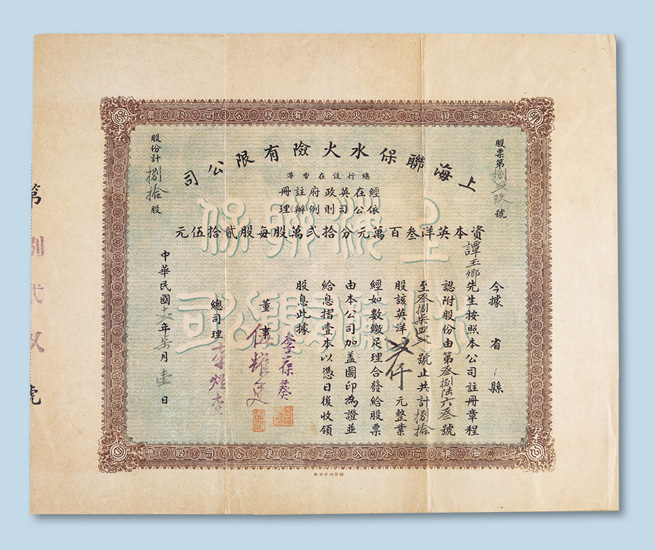 上海聯保水火險有限公司
總行設在香港
經在英政府註冊
依公司則例辦理
資本英洋叁百萬元分拾弍萬股每股貳拾伍元
股票第捌號
今據 省 縣
譚玉卿先生按照本公司註冊章程
認附股份由第叁捌陸六叁號
至叁捌柒四號止共計捌拾
股該英洋仟元整業
經如數繳足理合發給股票
由本公司加盖圖印為證並
給息摺壹本以憑日後收領
股息此據
董事
李葆葵
總司理
中華民國年月壹日
股份計捌拾股
第捌弍玖號
上海聯保